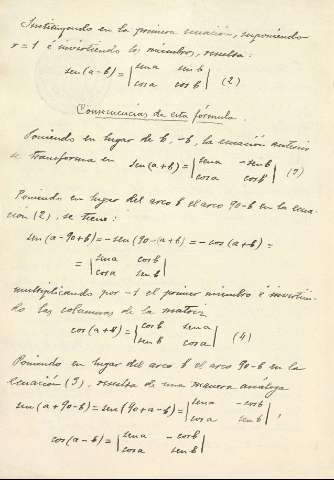 Sustituyendo en la primera ecuación, suponiendo
r = 1 é invirtiendo los miembros, resulta:
sen(a-b) = | sen a   sen b |
           | cos a   cos b |   (2)
Consecuencias de esta fórmula.
Poniendo en lugar de b, -b, la ecuación anterior
se transforma en sen(a+b) = | sen a   -sen b |
                            | cos a   cos b |   (3)
Poniendo en lugar del arco b el arco 90-b en la ecua-
ción (2), se tiene:
sen(a-90+b) = -sen(90-(a+b) = -cos(a+b) =
= | sen a   cos b |
  | cos a   sen b |
multiplicando por -1 el primer miembro é invirtien-
do las columnas de la matriz
cos(a+b) = | cos b   sen a |
           | sen b   cos a |   (4)
Poniendo en lugar del arco b el arco 90-b en la
ecuación (3), resulta de una manera análoga
sen(a+90-b) = sen(90+a-b) = | sen a   -cos b |
                            | cos a   sen b | ,
cos(a-b) = | sen a   -cos b |
           | cos a   sen b |